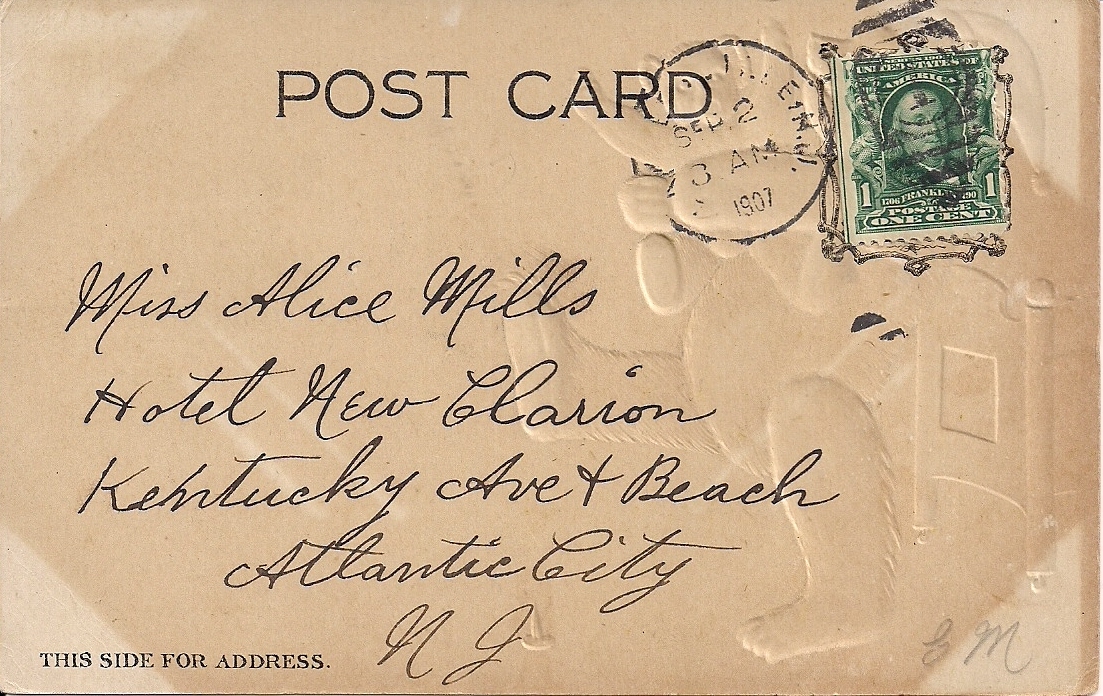 POST CARD
SEP 2
3 AM
1907
N.J.
SERIES 1902
UNITED STATES OF
AMERICA
1 1706 FRANKLIN 1790 1
POSTAGE
ONE CENT
Miss Alice Mills
Hotel New Clarion
Kentucky Ave & Beach
Atlantic City
N J
THIS SIDE FOR ADDRESS.
E M